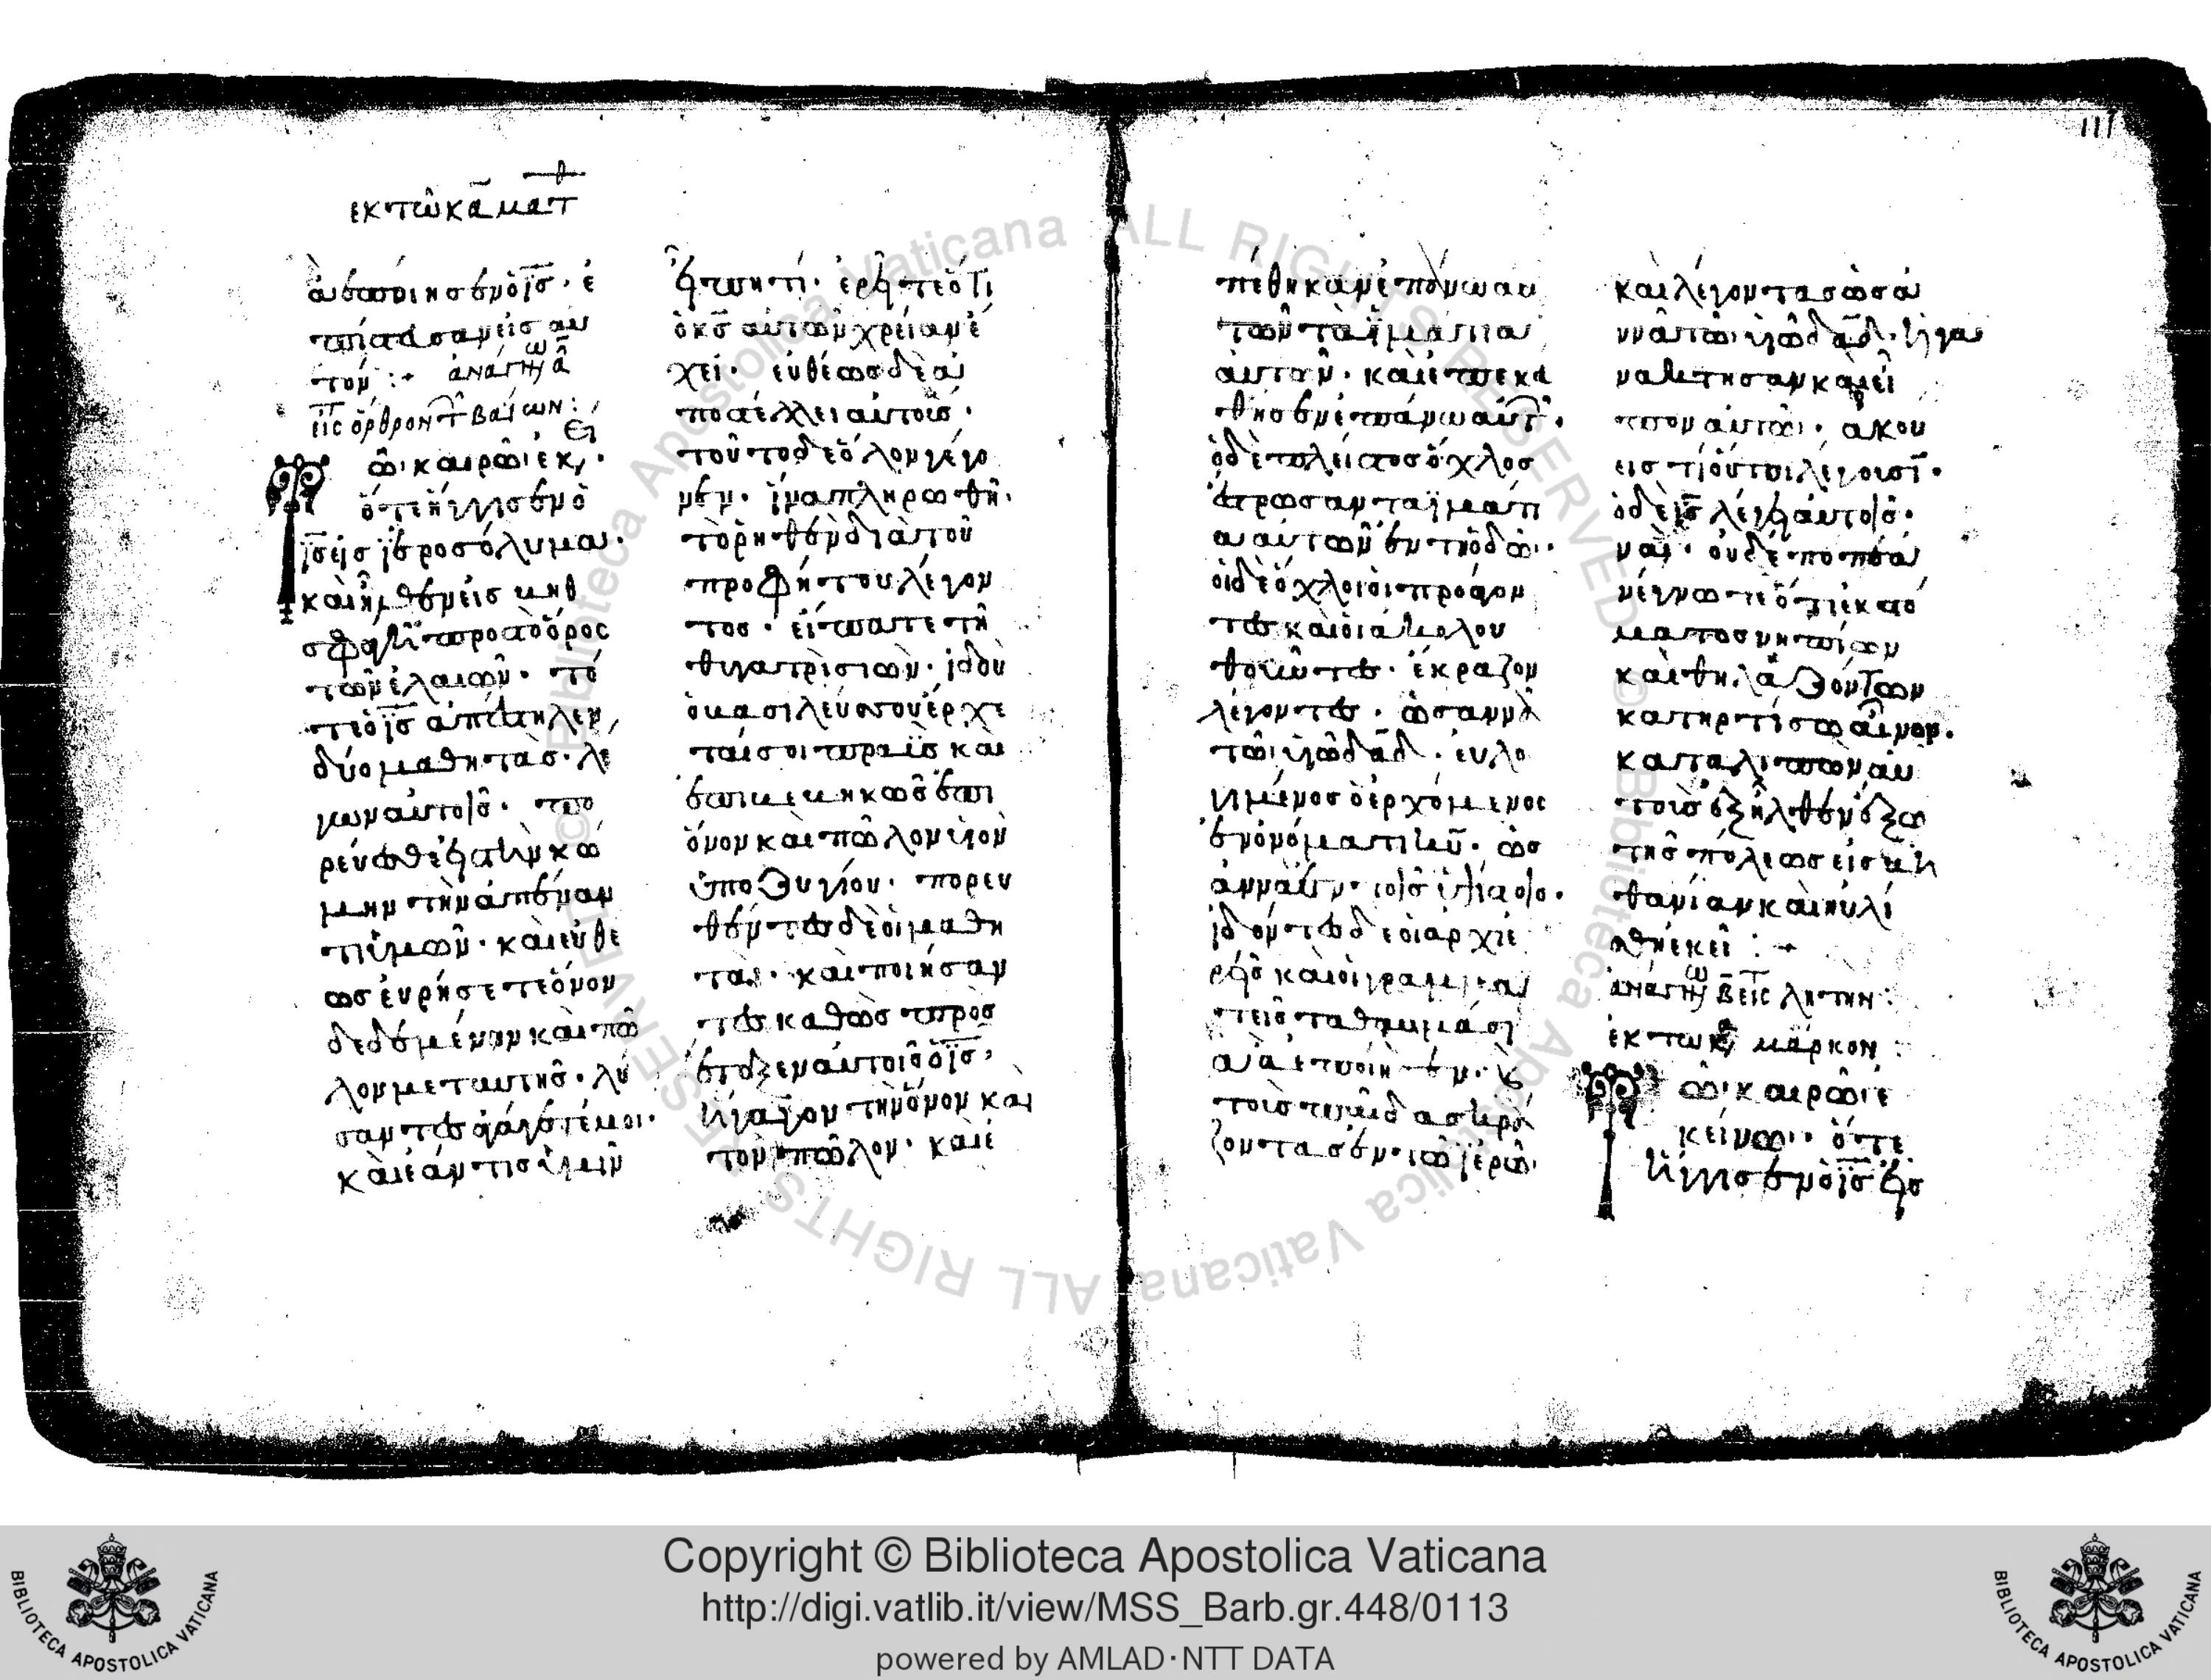 ἐκ τῶ κα ματθ
ἃ ἐποίησεν ὁ ις· ἐ
πίστευσαν εἰς αυ
τόν :+ ἀνάγνω α
εις ὄρθρον τ βαίων:
ῶι καιρῶι ἐκ,·
ὅτε ἤγγισεν ὁ
ις εἰς ἱεροσόλυμα·
καὶ ἦλθεν εἰς βηθ
σφαγὶ προς τὸ ὄρος
τῶν ἐλαιῶν· τό
τε ὁ ις ἀπέστειλεν
δύο μαθητὰς· λέ
γων αὐτοῖς· πο
ρεύεσθε εἰς τὴν κώ
μην τὴν ἀπέναν
τι ὑμῶν· καὶ εὐθέ
ως εὑρήσετε ὄνον
δεδεμένην καὶ πῶ
λον μετ αυτῆς· λύ
σαντες ἀγάγετέ μοι·
καὶ ἐάν τις ὑμῖν
εἴπη τί· ἐρεῖτε ὅτι
ὁ κς αὐτῶν χρείαν ἔ
χει· εὐθέως δὲ ἀ
ποστέλλει αὐτούς·
τοῦτο δὲ ὅλον γέγο
νεν· ἵνα πληρωθῆ·
τὸ ῥηθὲν διὰ τοῦ
προφήτου λέγον
τος· εἴπατε τῆ
θυγατρὶ σιών· ἰδοὺ
ὁ βασιλεύς σου ἔρχε
ταί σοι πραΰς και
ἐπιβεβηκὼς ἐπι
ὄνον καὶ πῶλον υἱὸν
ὑποζυγίου· πορευ
θέντες δὲ οἱ μαθη
ταὶ· καὶ ποιήσαν
τες καθὼς προς
έταξεν αὐτοῖς ὁ ις·
ἤγαγον τὴν ὄνον και
τὸν πῶλον· καὶ ἐ
πέθηκαν ἐπάνω αυ
τῶν τὰ ἱμάτια
αὐτῶν· καὶ ἐπεκά
θησεν ἐπάνω αὐτῶν·
ὁ δὲ πλεῖστος ὄχλος
ἔστρωσαν τα ἱμάτι
α αὐτῶν ἐν τῆ ὁδῶ·
οἱ δὲ ὄχλοι οἱ προάγον
τες καὶ οἱ ἀκολου
θοῦντες· ἔκραζον
λέγοντες· ὡσαννὰ
τῶι υἱῶ δαδ· εὐλο
γημένος ὁ ἐρχόμενος
ἐν ὀνόματι κυ· ὡσ
αννὰ ἐν τοῖς ὑψίστοις·
ἰδόντες δὲ οἱ ἀρχιε
ρεῖς καὶ οἱ γραμμα
τεῖς τα θαυμάσι
α ἃ ἐποίησεν· κ
τοὺς παῖδας κρά
ζοντας ἐν τῶ ἱερῶ·
και λέγοντας ὡσα
ννὰ τῶι υἱῶ δαδ· ἠγα
νάκτησαν καὶ εἶ
πον αὐτῶι· ἀκού
εις τί οὗτοι λέγουσιν·
ὁ δὲ ις λέγει αὐτοῖς·
ναὶ· οὐδέποτε ἀ
νέγνωτε ὅτι ἐκ στό
ματος νηπίων
καὶ θηλαζόντων
κατηρτίσω αἶνον·
καταλιπὼν αὐ
τοὺς ἐξῆλθεν ἔξω
τῆς πόλεως εἰς βη
θανίαν καὶ ηὐλί
σθη ἐκεῖ :+
ἀνάγνω β εις λητην:
ἐκ τοῦ κ μάρκον :
ῶι καιρῶι ἐ
κείνωι· ὅτε
ἤγγισεν ὁ ις εἰς
111
Copyright © Biblioteca Apostolica Vaticana
http://digi.vatlib.it/view/MSS_Barb.gr.448/0113
powered by AMLAD·NTT DATA
BIBLIOTECA APOSTOLICA VATICANA
BIBLIOTECA APOSTOLICA VATICANA